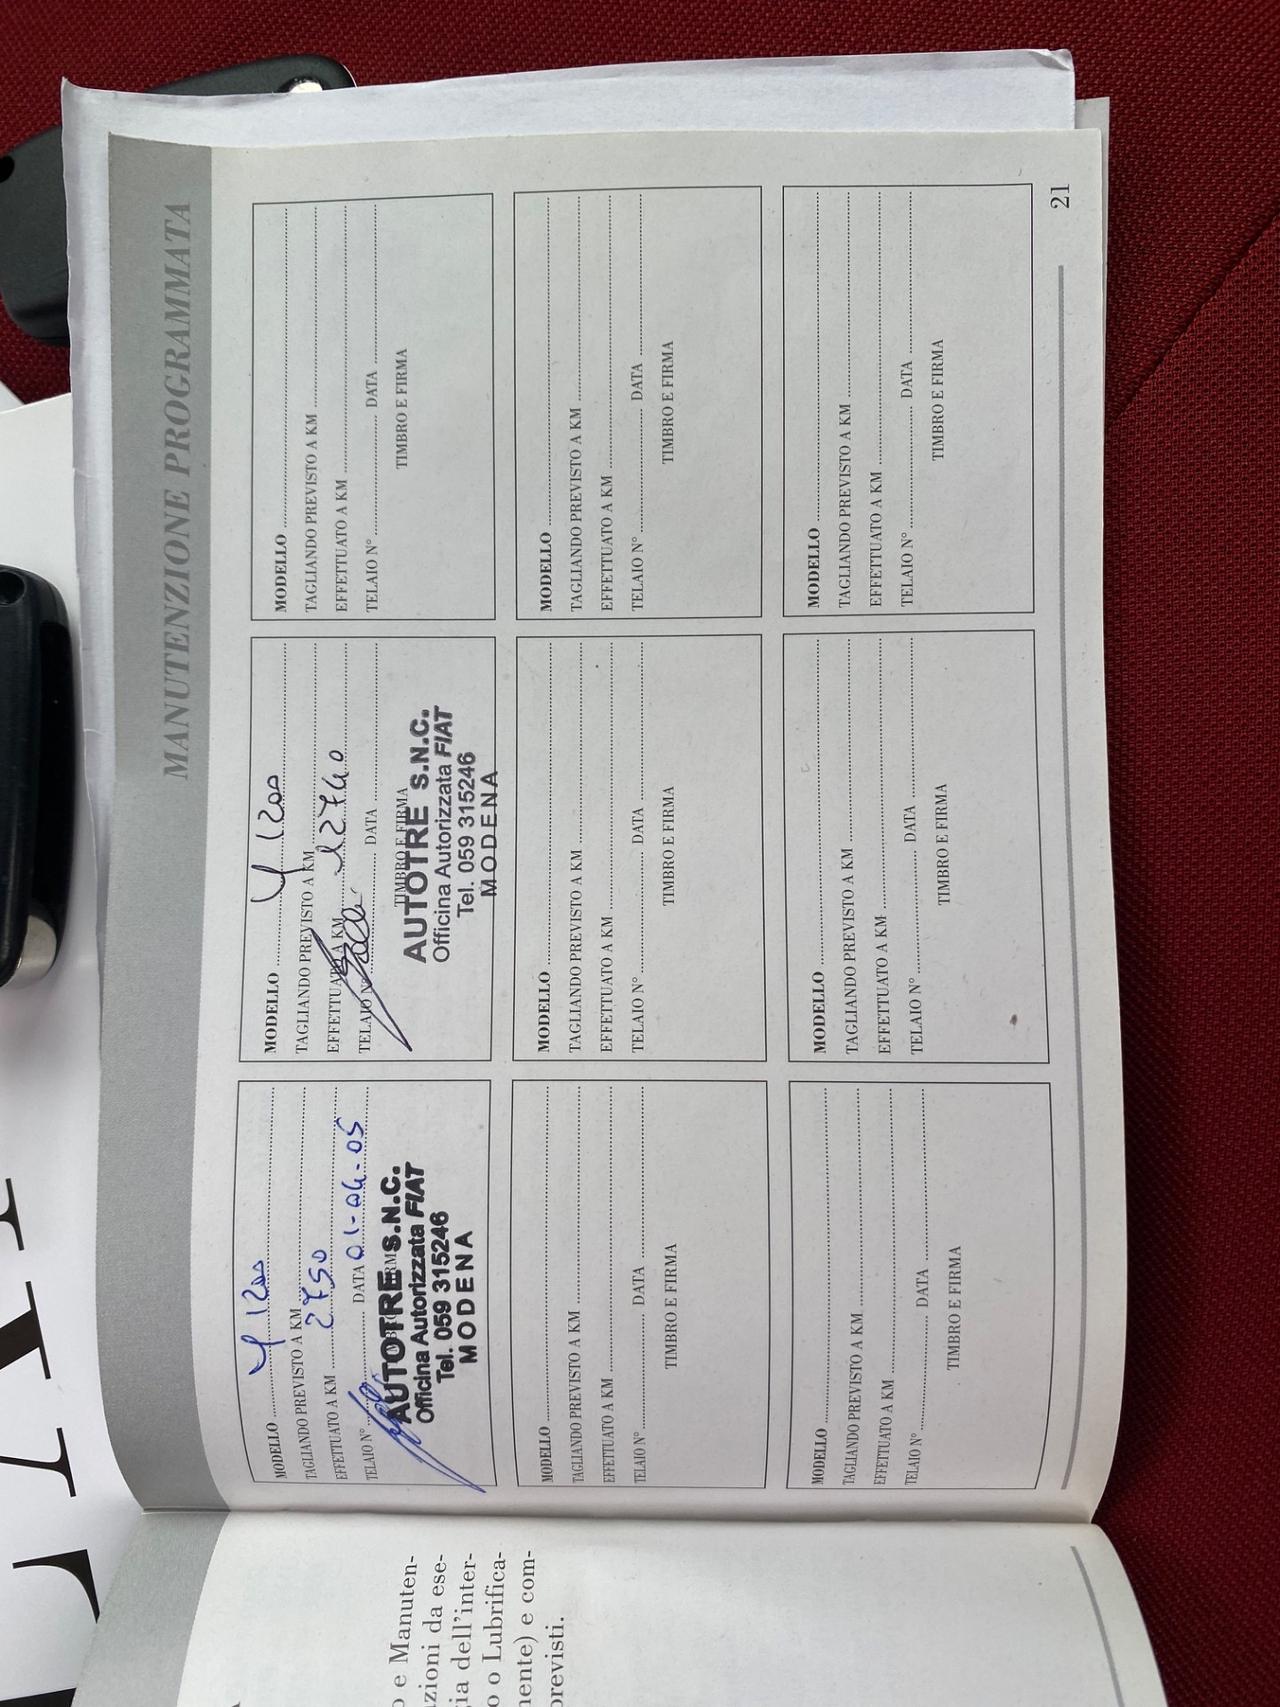 MANUTENZIONE PROGRAMMATA
MODELLO Y 1200
TAGLIANDO PREVISTO A KM
EFFETTUATO A KM 2750
TELAIO N° DATA 01-04-05
TIMBRO E FIRMA
AUTOTRE S.N.C.
Officina Autorizzata FIAT
Tel. 059 315246
MODENA
MODELLO Y 1200
TAGLIANDO PREVISTO A KM
EFFETTUATO A KM 12740
TELAIO N° DATA
TIMBRO E FIRMA
AUTOTRE S.N.C.
Officina Autorizzata FIAT
Tel. 059 315246
MODENA
MODELLO
TAGLIANDO PREVISTO A KM
EFFETTUATO A KM
TELAIO N° DATA
TIMBRO E FIRMA
MODELLO
TAGLIANDO PREVISTO A KM
EFFETTUATO A KM
TELAIO N° DATA
TIMBRO E FIRMA
MODELLO
TAGLIANDO PREVISTO A KM
EFFETTUATO A KM
TELAIO N° DATA
TIMBRO E FIRMA
MODELLO
TAGLIANDO PREVISTO A KM
EFFETTUATO A KM
TELAIO N° DATA
TIMBRO E FIRMA
MODELLO
TAGLIANDO PREVISTO A KM
EFFETTUATO A KM
TELAIO N° DATA
TIMBRO E FIRMA
MODELLO
TAGLIANDO PREVISTO A KM
EFFETTUATO A KM
TELAIO N° DATA
TIMBRO E FIRMA
MODELLO
TAGLIANDO PREVISTO A KM
EFFETTUATO A KM
TELAIO N° DATA
TIMBRO E FIRMA
21
o e Manuten-
zioni da ese-
gia dell'inter-
o o Lubrifica-
mente) e com-
previsti.